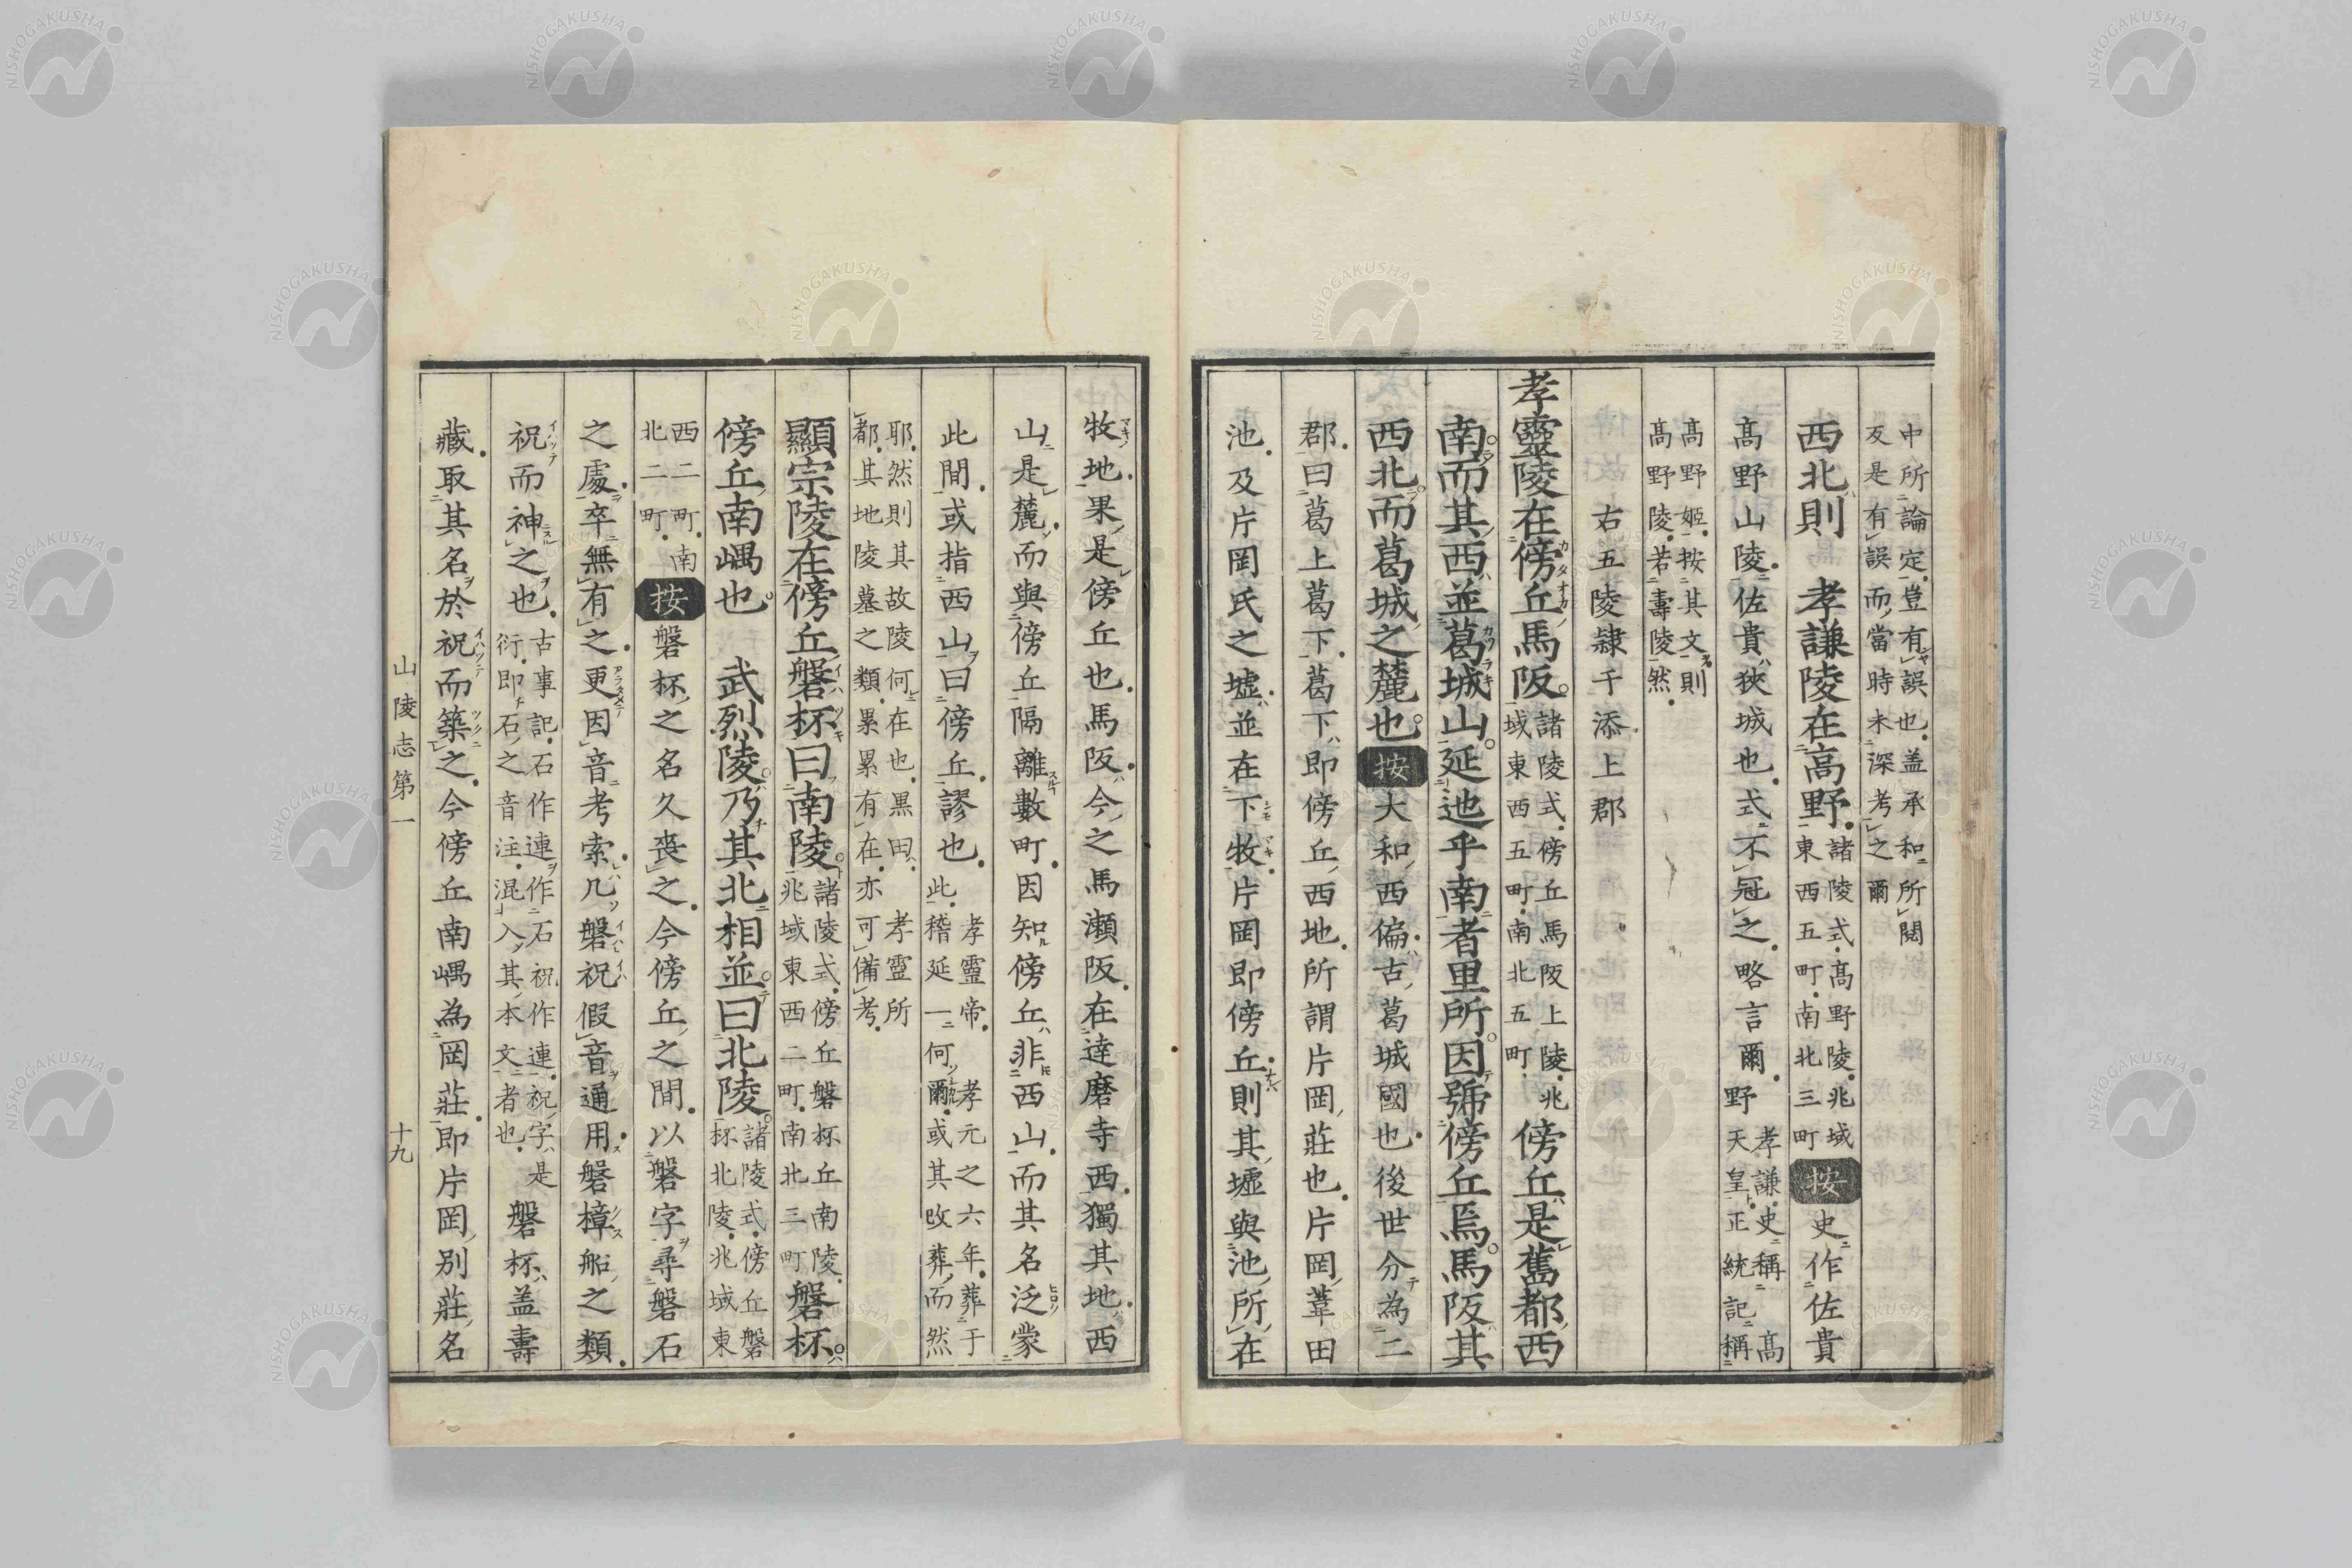 中所論定豈有誤也盖承和所閲
反是有誤而當時未深考之爾
西北則　孝謙陵在高野諸陵式高野陵兆域
東西五町南北三町按史作佐貴
高野山陵佐貴狹城也式不冠之略言爾孝謙史稱高
野天皇正統記稱
高野姬按其文則
高野陵若壽陵然
右五陵隷于添上郡
孝靈陵在傍丘馬阪諸陵式傍丘馬阪上陵兆
域東西五町南北五町傍丘是舊都西
南而其西並葛城山延迆乎南者里所因號傍丘焉馬阪其
西北而葛城之麓也按大和西偏古葛城國也後世分為二
郡曰葛上葛下葛下即傍丘西地所謂片岡莊也片岡葦田
池及片岡氏之墟並在下牧片岡即傍丘則其墟與池所在
牧地果是傍丘也馬阪今之馬瀬阪在達磨寺西獨其地西
山是麓而與傍丘隔離數町因知傍丘非西山而其名泛蒙
此間或指西山曰傍丘謬也孝靈帝孝元之六年葬于
此稽延一何爾或其改葬而然
耶然則其故陵何在也黒田孝靈所
都其地陵墓之類累累有在亦可備考
顯宗陵在傍丘磐杯曰南陵諸陵式傍丘磐杯丘南陵
兆域東西二町南北三町磐杯
傍丘南嵎也　武烈陵乃其北相並曰北陵諸陵式傍丘磐
杯北陵兆域東
西二町南
北二町按磐杯之名久喪之今傍丘之間以磐字尋磐石
之處卒無有之更因音考索凡磐祝假音通用磐樟船之類
祝而神之也古事記石作連作石祝作連祝字是
衍即石之音注混入其本文者也磐杯盖壽
藏取其名於祝而築之今傍丘南嵎為岡莊即片岡別莊名
山陵志第一　十九
NISHOGAKUSHA